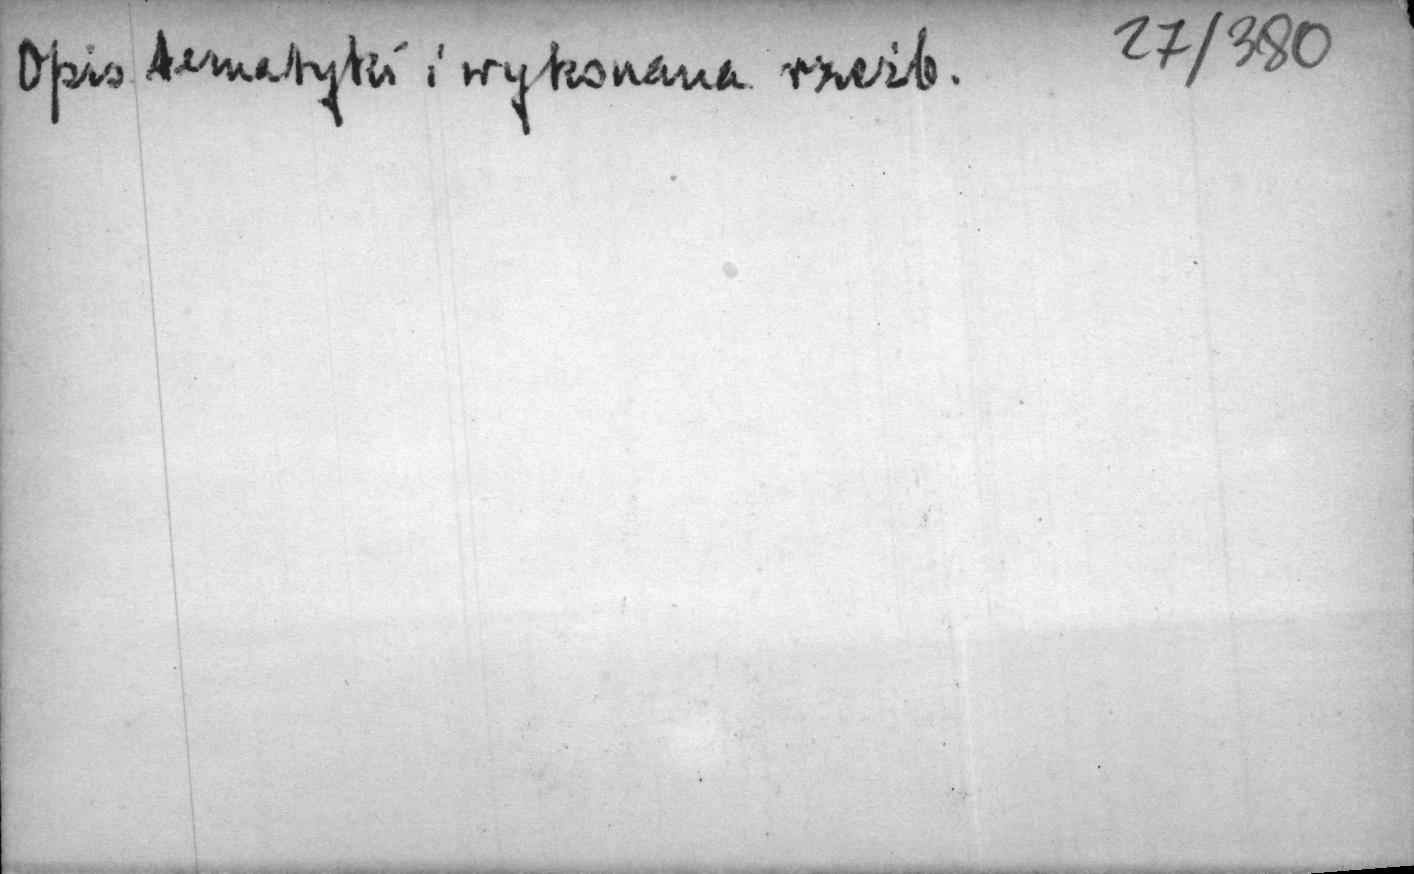 Opis tematyki i wykonana rzeźb. 27/380